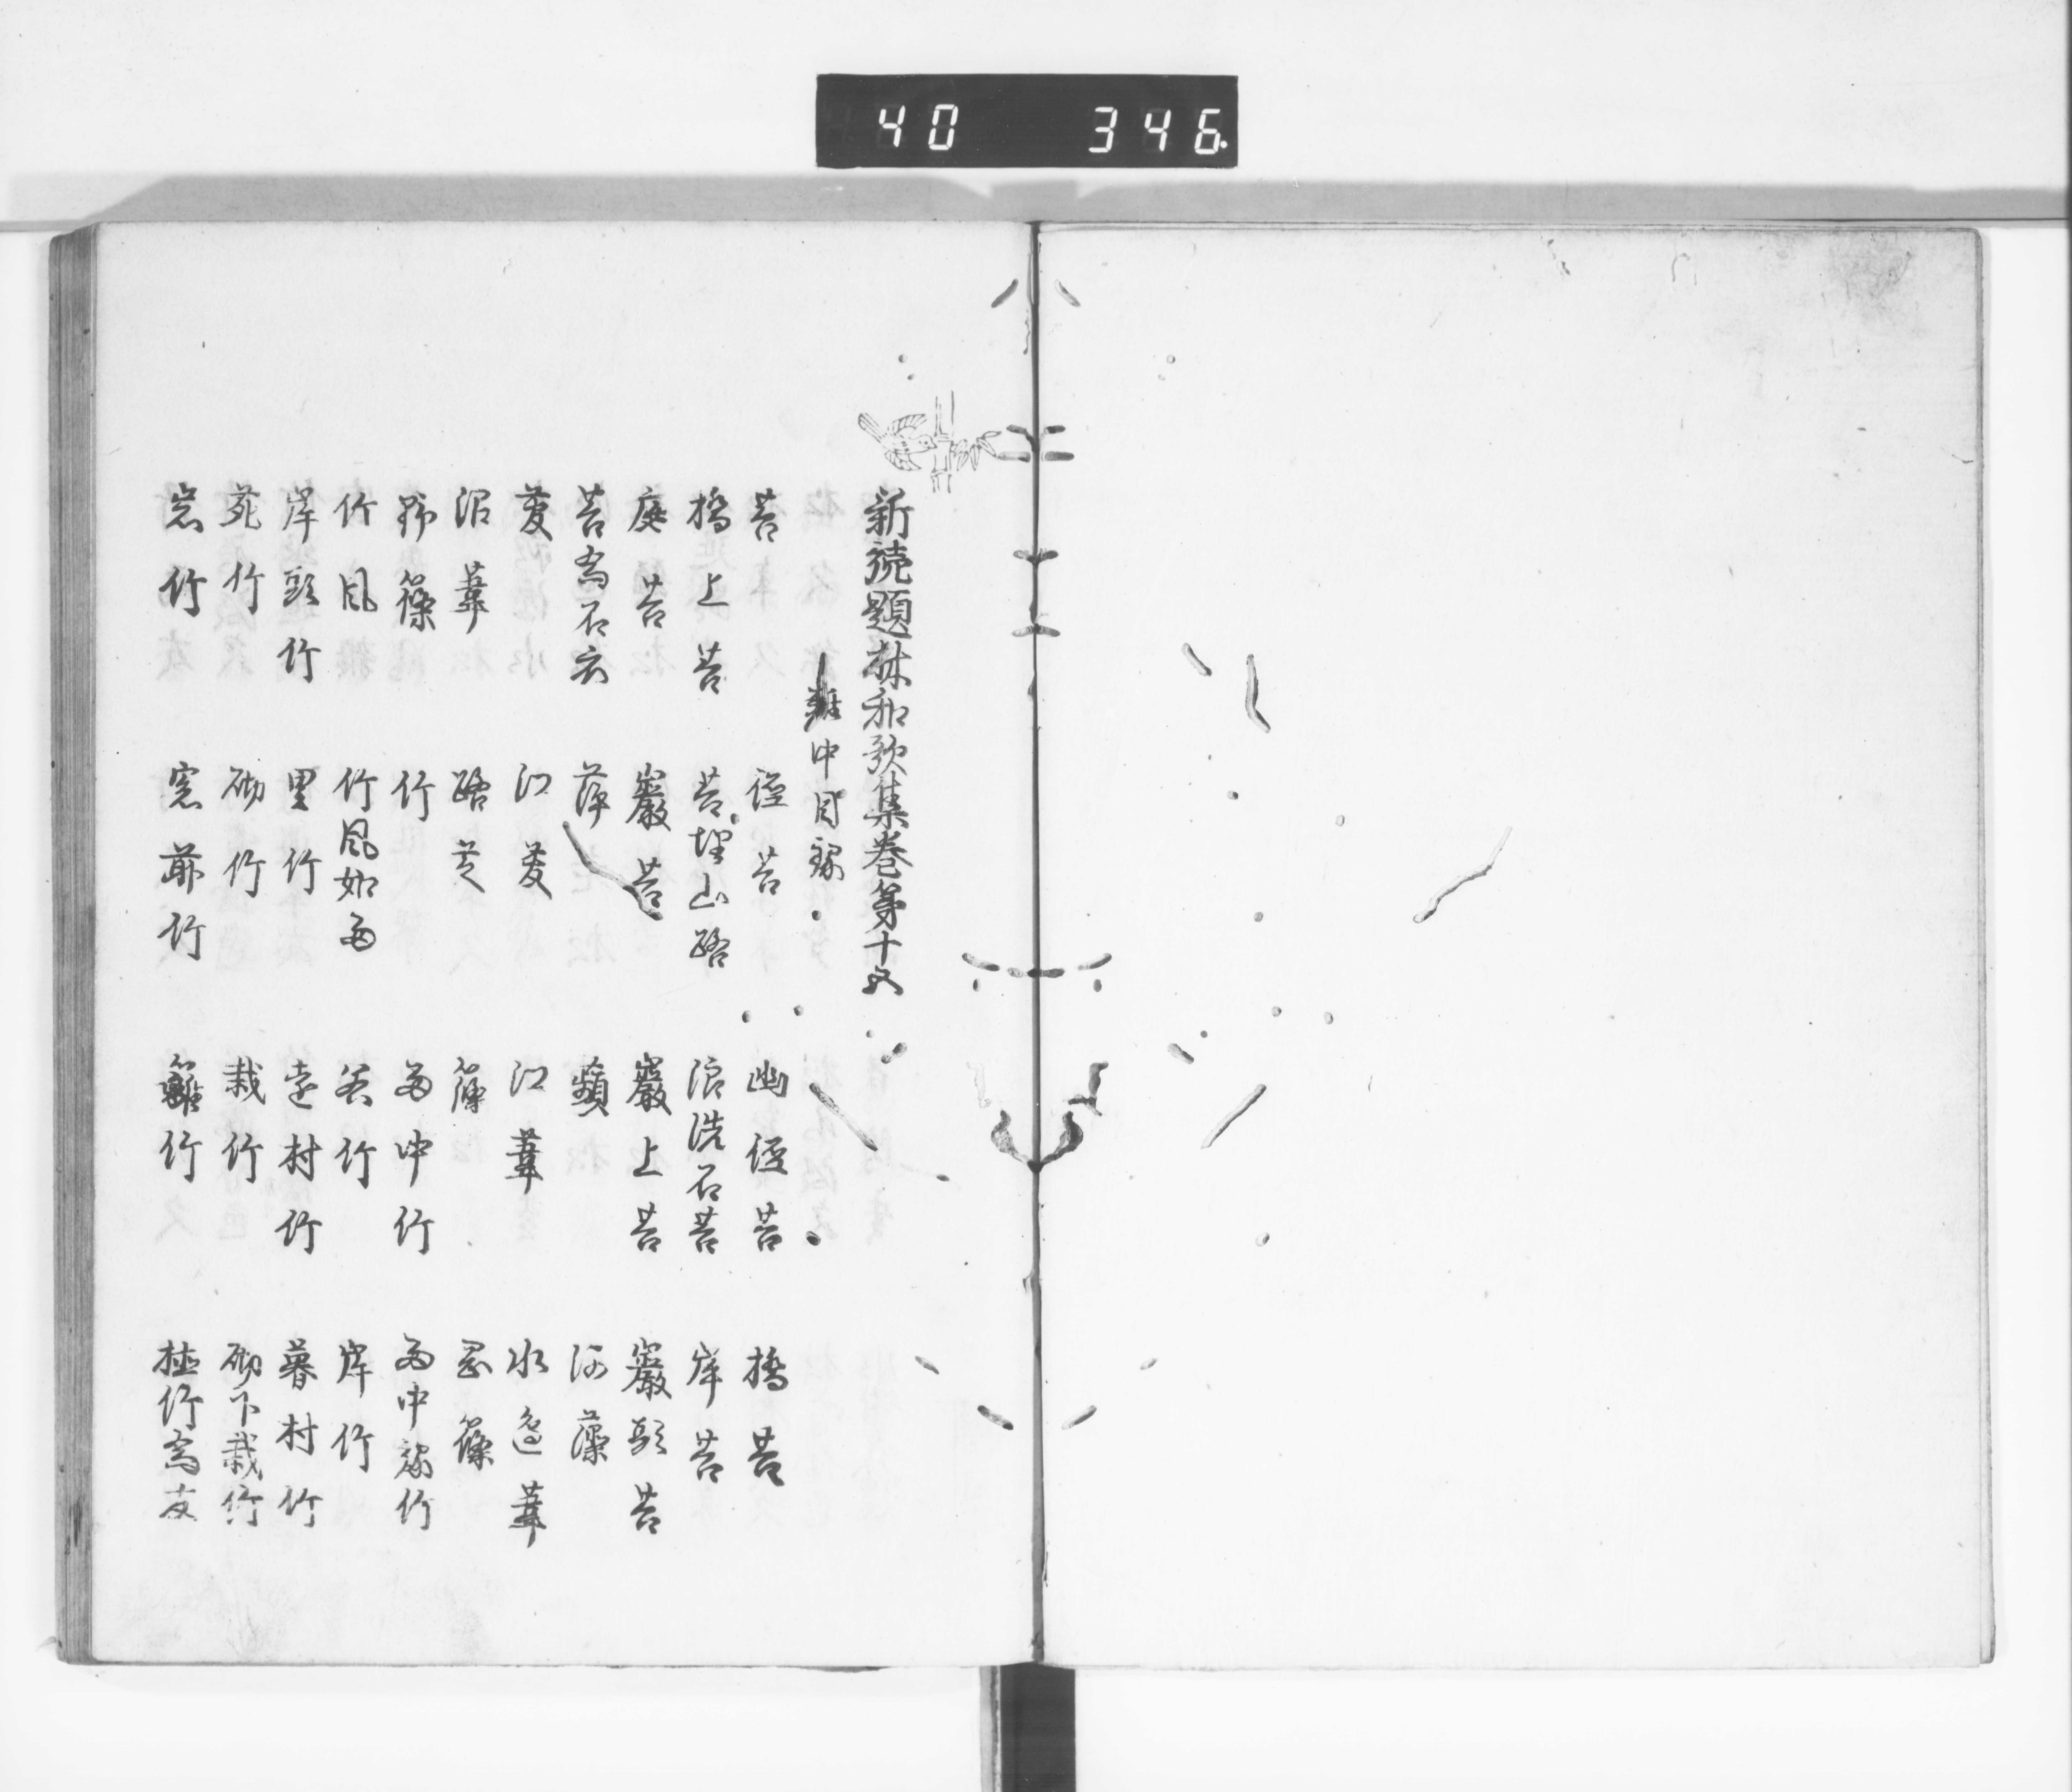 40 346
新続題林和歌集巻第十五
雑中目録
苔 径苔 幽径苔 橋苔
橋上苔 苔埋山路 浪洗石苔 岸苔
庭苔 巌苔 巌上苔 巌頭苔
苔為石衣 萍 蘋 河藻
菱 江菱 江葦 水辺葦
沼葦 路芝 篠 岡篠
野篠 竹 雨中竹 雨中緑竹
竹風 竹風如雨 谷竹 岸竹
岸頭竹 里竹 遠村竹 暮村竹
苑竹 砌竹 栽竹 砌下栽竹
窓竹 窓前竹 籬竹 植竹為友